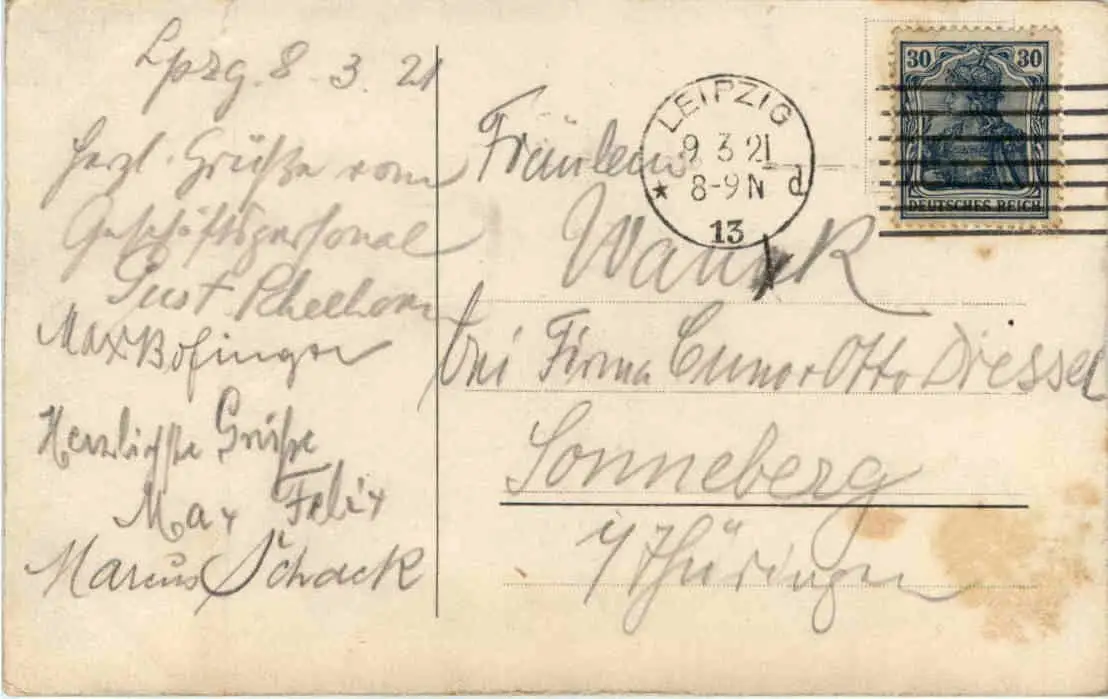 Lpzg. 8. 3. 21
Herzl. Grüße vom
Geschäftspersonal
Gust. Schelhorn
Max Bofinger
Herzlichste Grüße
Max Felix
Marcus Schack
30 30
DEUTSCHES REICH
LEIPZIG
9 3 21
8-9 N
* d
13
Fräulein
bei Firma Cuno & Otto Dressel
Sonneberg
i/Thüringen